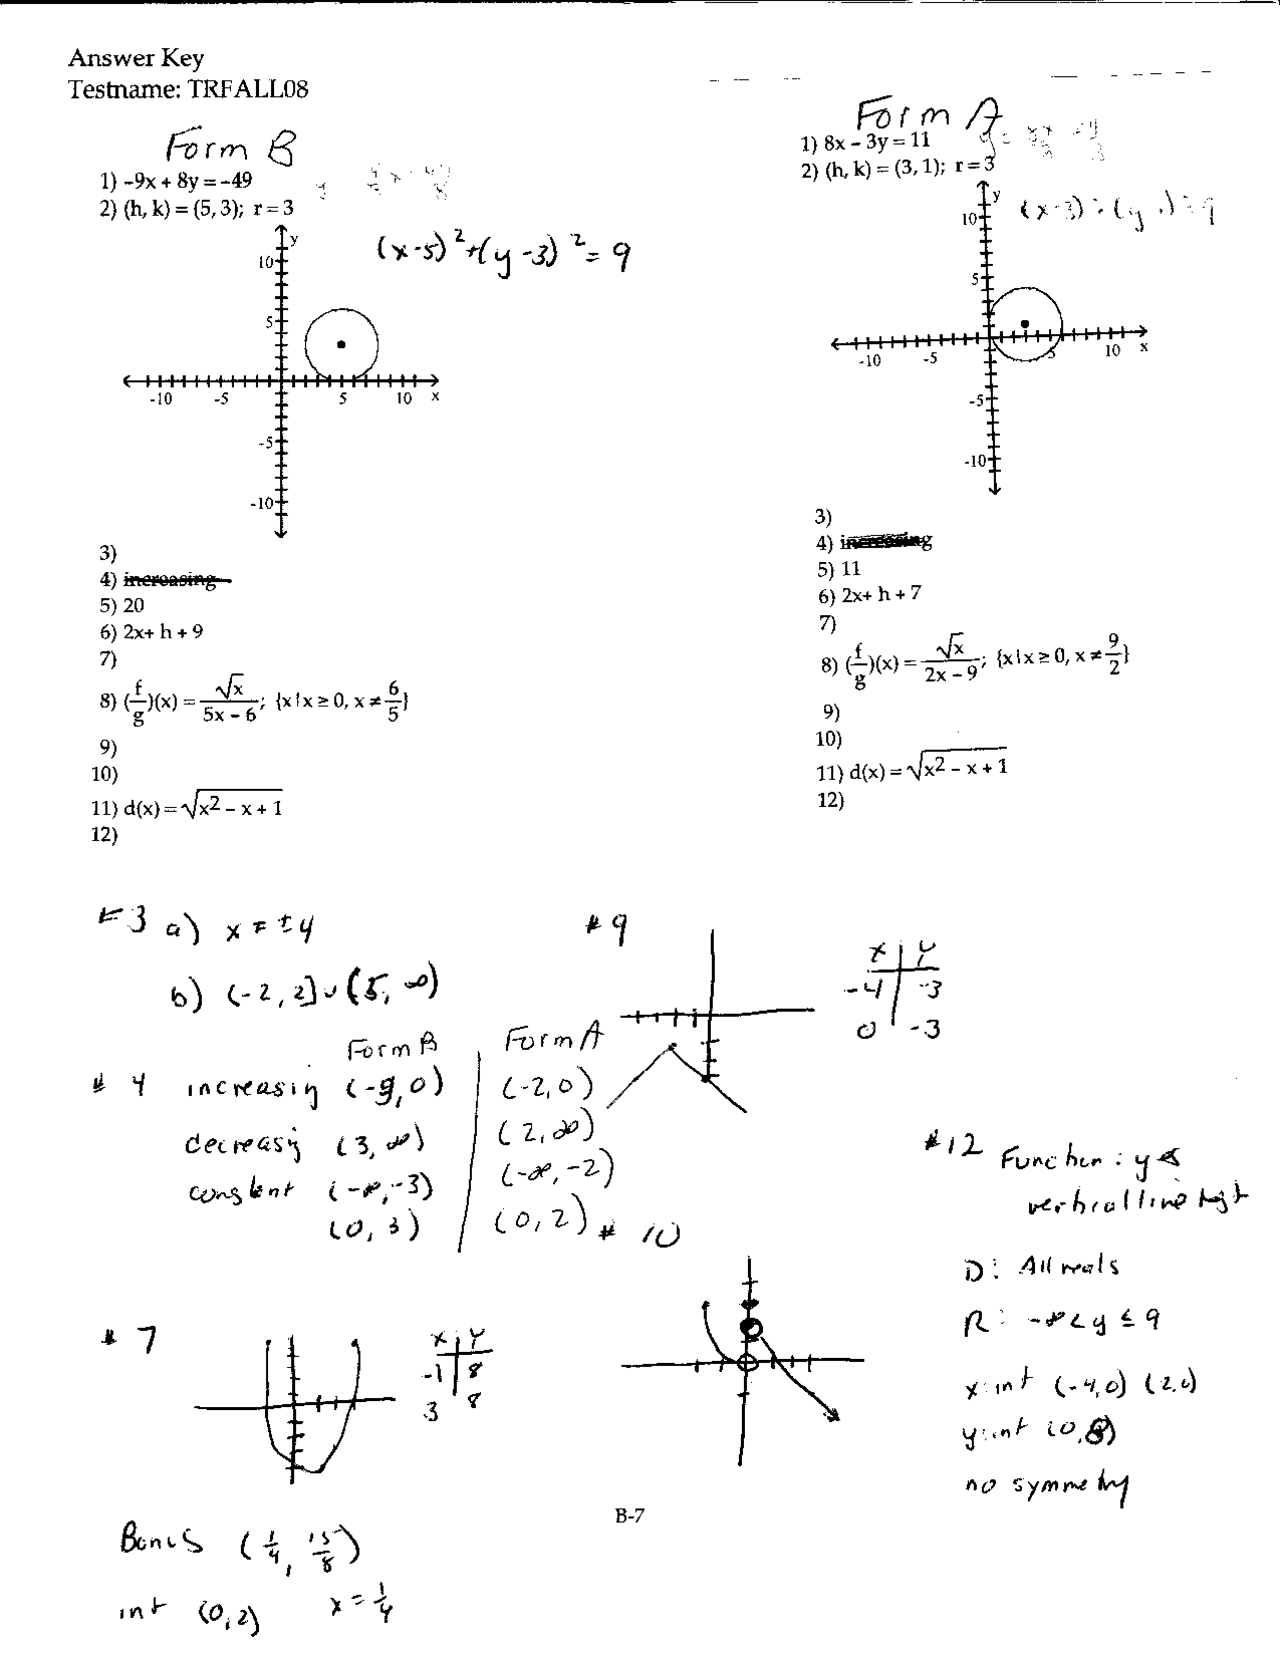 Answer Key
Testname: TRFALL08
Form B
1) -9x + 8y = -49
2) (h, k) = (5, 3); r = 3
(x-5)²+(y-3)² = 9
y
10
5
-10 -5 5 10 x
-5
-10
3)
4) increasing
5) 20
6) 2x+ h + 9
7)
8) (f/g)(x) = √x/(5x - 6); {x|x ≥ 0, x ≠ 6/5}
9)
10)
11) d(x) = √(x² - x + 1)
12)
Form A
1) 8x - 3y = 11
2) (h, k) = (3, 1); r = 3
y
10
5
-10 -5 5 10 x
-5
-10
3)
4) increasing
5) 11
6) 2x+ h + 7
7)
8) (f/g)(x) = √x/(2x - 9); {x|x ≥ 0, x ≠ 9/2}
9)
10)
11) d(x) = √(x² - x + 1)
12)
#3 a) x = ±4
b) (-2, 2]∪(5, ∞)
Form B Form A
#4 increasing (-3,0) (-2,0)
decreasing (3, ∞) (2, ∞)
constant (-∞, -3) (-∞, -2)
(0, 3) (0, 2)
#7
x y
-1 8
3 8
Bonus (1/4, 15/8)
int (0,2) x = 1/4
#9
x y
-4 -3
0 -3
#10
#12 Function: y
vertical line test
D: All reals
R: -∞ < y ≤ 9
x-int (-4,0) (2,0)
y-int (0,8)
no symmetry
B-7